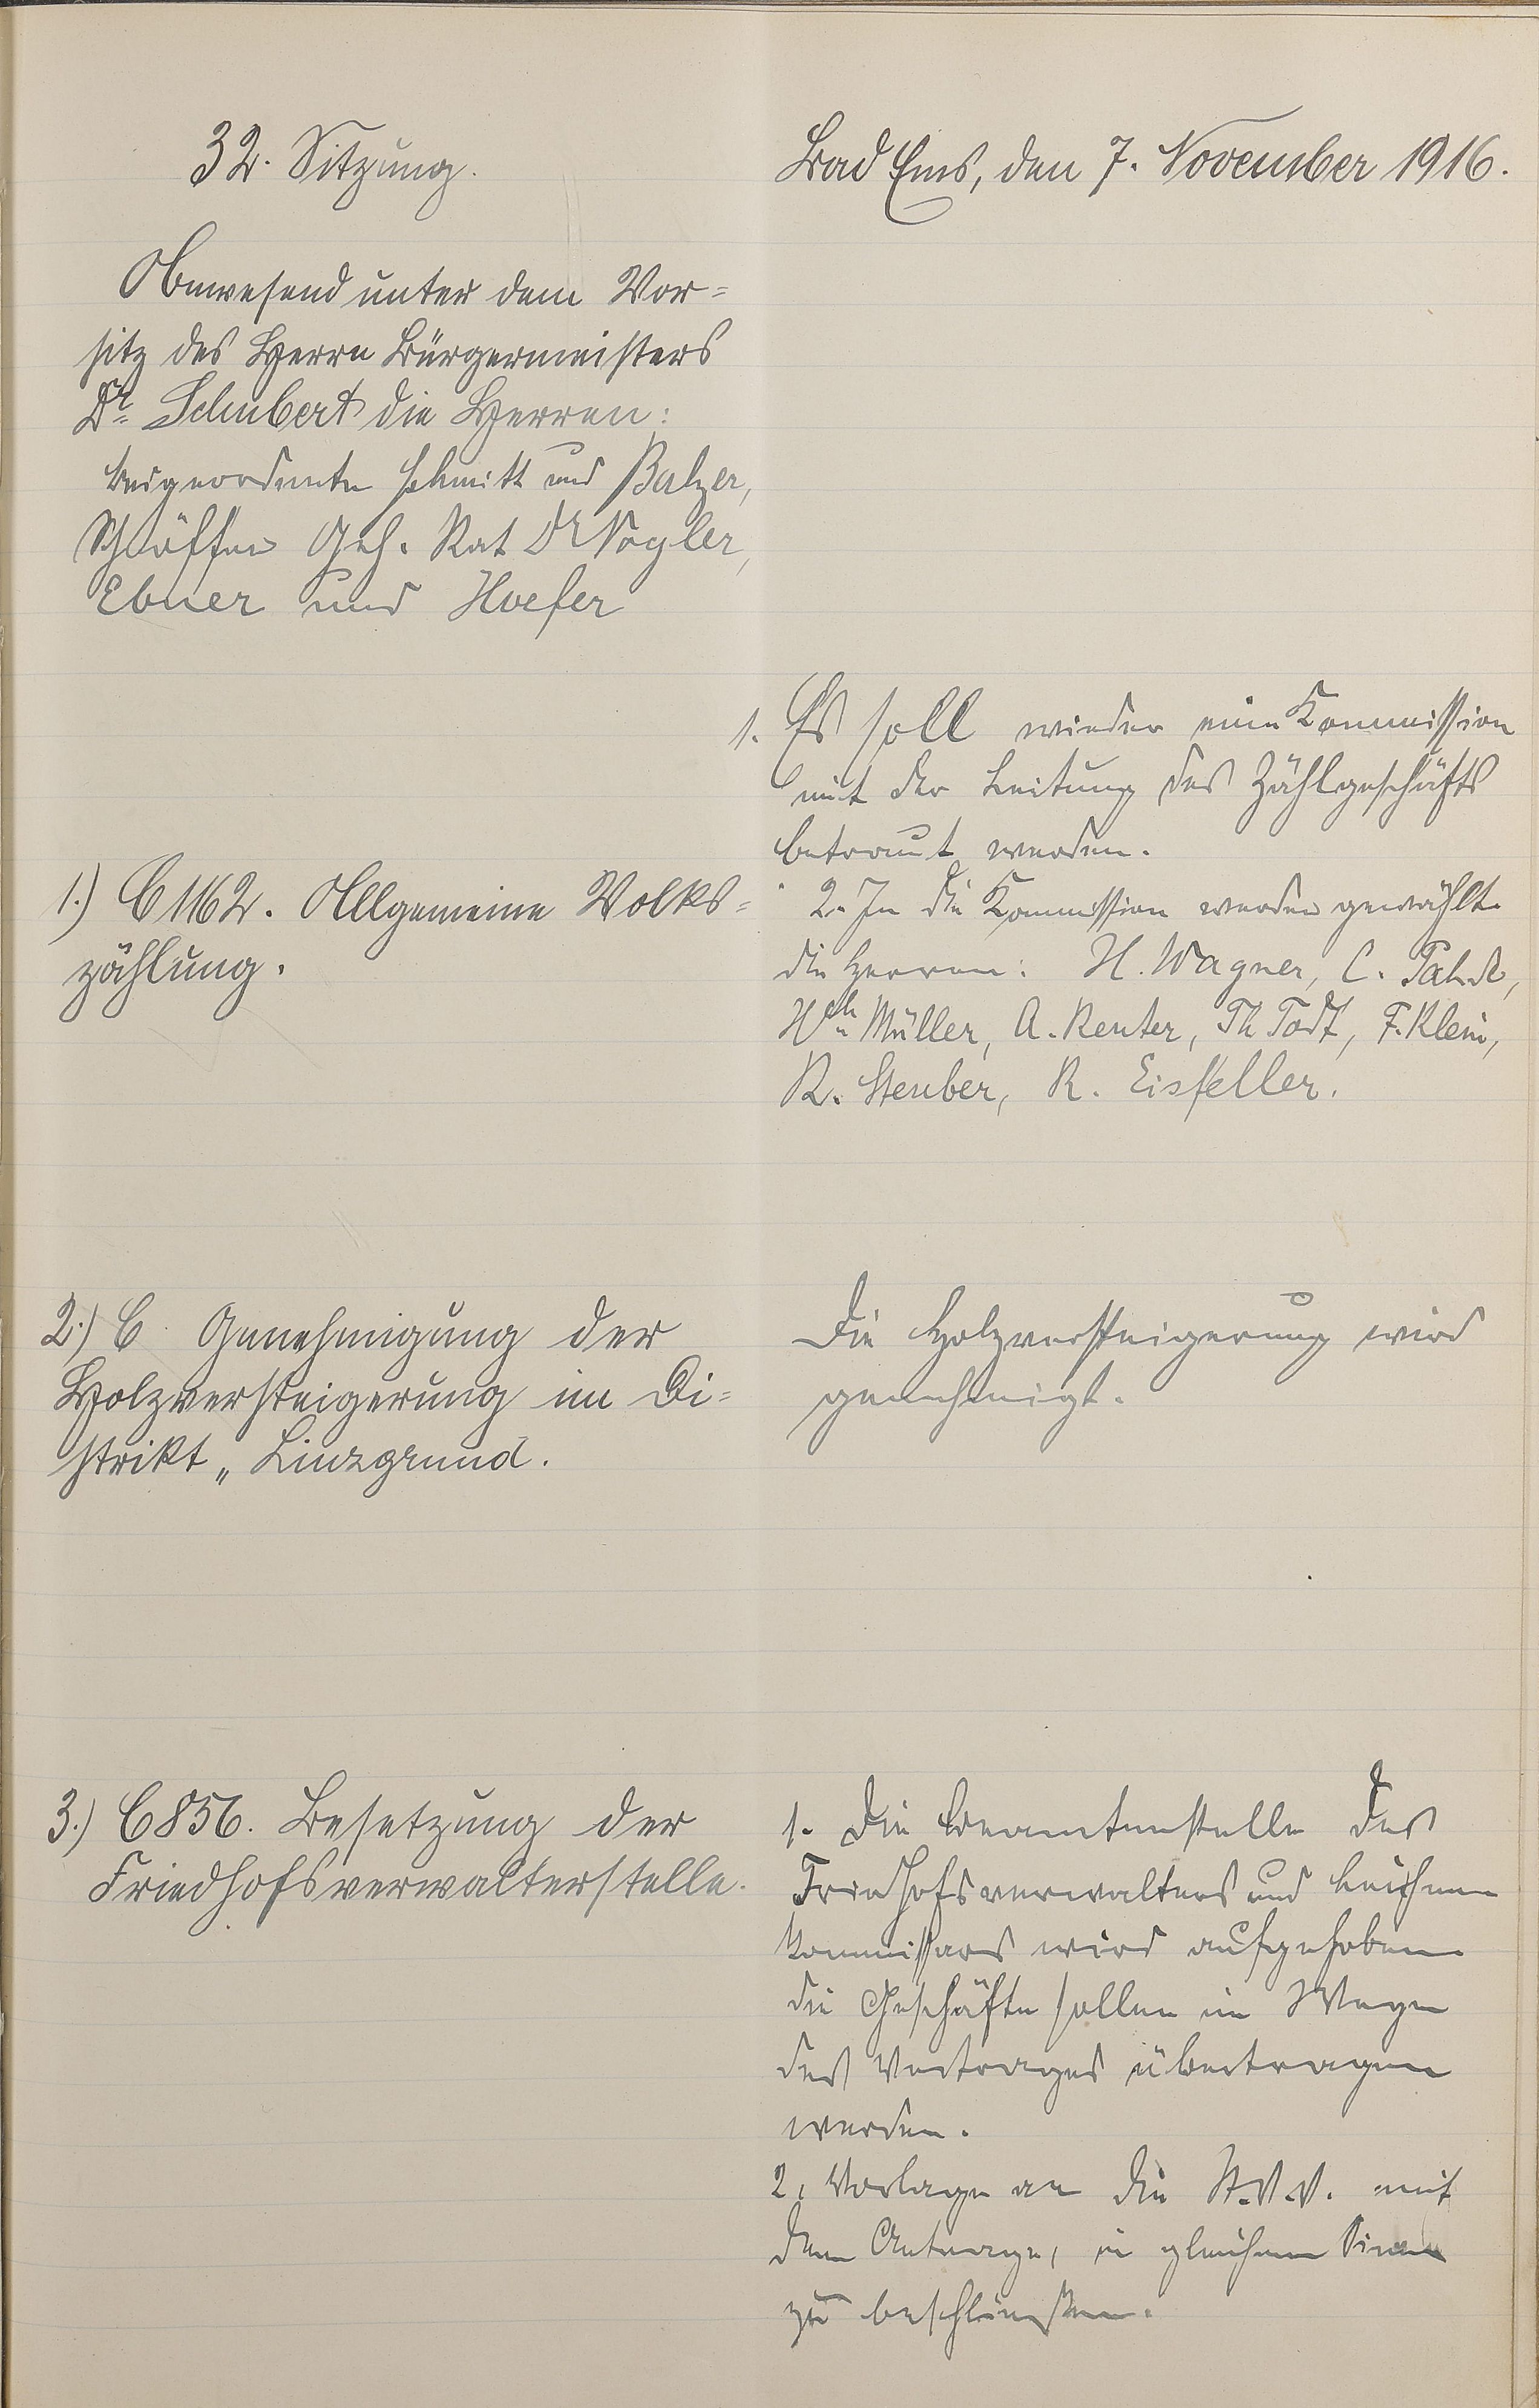 32. Sitzung.
Bad Ems, den 7. November 1916.
Anwesend unter dem Vor=
sitz des Herrn Bürgermeisters
Dr. Schubert die Herren:
Beigeordnete Schmitt und Balzer,
Schöffen Geh. Rat Dr Vogler,
Ebner und Hoefer
1.) C 1162. Allgemeine Volks=
zählung.
1. Es soll wieder eine Kommission
mit der Leitung des Zählgeschäfts
betraut werden.
2. In die Kommission werden gewählt
die Herren: H. Wagner, C.
Wh. Müller, A. Reuter, Th. Todt, F. Klein,
R. Steuber, R. Eisfeller.
2.) C. Genehmigung der
Holzversteigerung im Di=
strikt „Linzgrund.
Die Holzversteigerung wird
genehmigt.
3.) C 856. Besetzung der
Friedhofsverwalterstelle.
1. Die Beamtenstelle des
Friedhofsverwalters und Leichen
kommissars wird aufgehoben
die Geschäfte sollen im Wege
des Vertrages übertragen
werden.
2. Vorlage an die St.V.V. mit
dem Antrage, in gleichem Sinne
zu beschliessen.